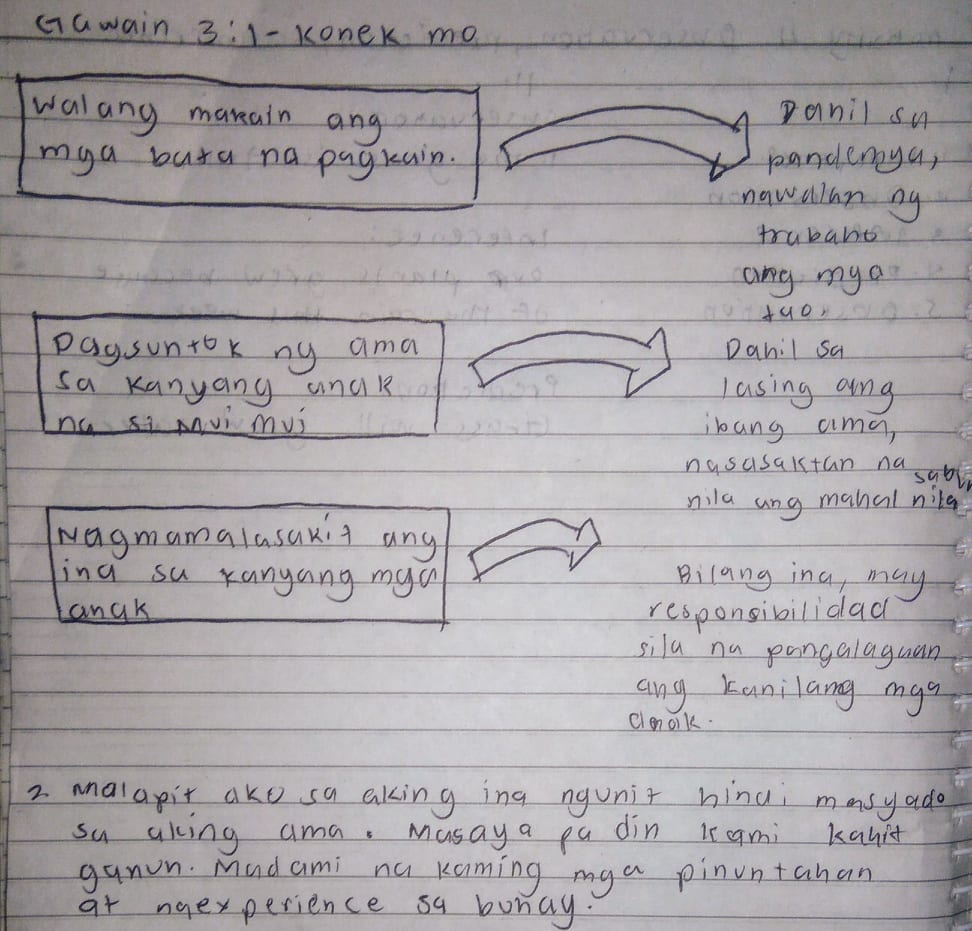 Gawain 3:1 - Konek mo
Walang makain ang
mga bata na pagkain.
Dahil sa
pandemya,
nawalan ng
trabaho
ang mga
tao.
Pagsuntok ng ama
sa kanyang anak
na si Mui mui
Dahil sa
lasing ang
ibang ama,
nasasaktan na
nila ang mahal nila
sabuh
Nagmamalasakit ang
ina sa kanyang mga
anak
Bilang ina, may
responsibilidad
sila na pangalagaan
ang kanilang mga
anak.
2 Malapit ako sa aking ina ngunit hindi masyado
sa aking ama. Masaya pa din kami kahit
ganun. Madami na kaming mga pinuntahan
at naexperience sa buhay.